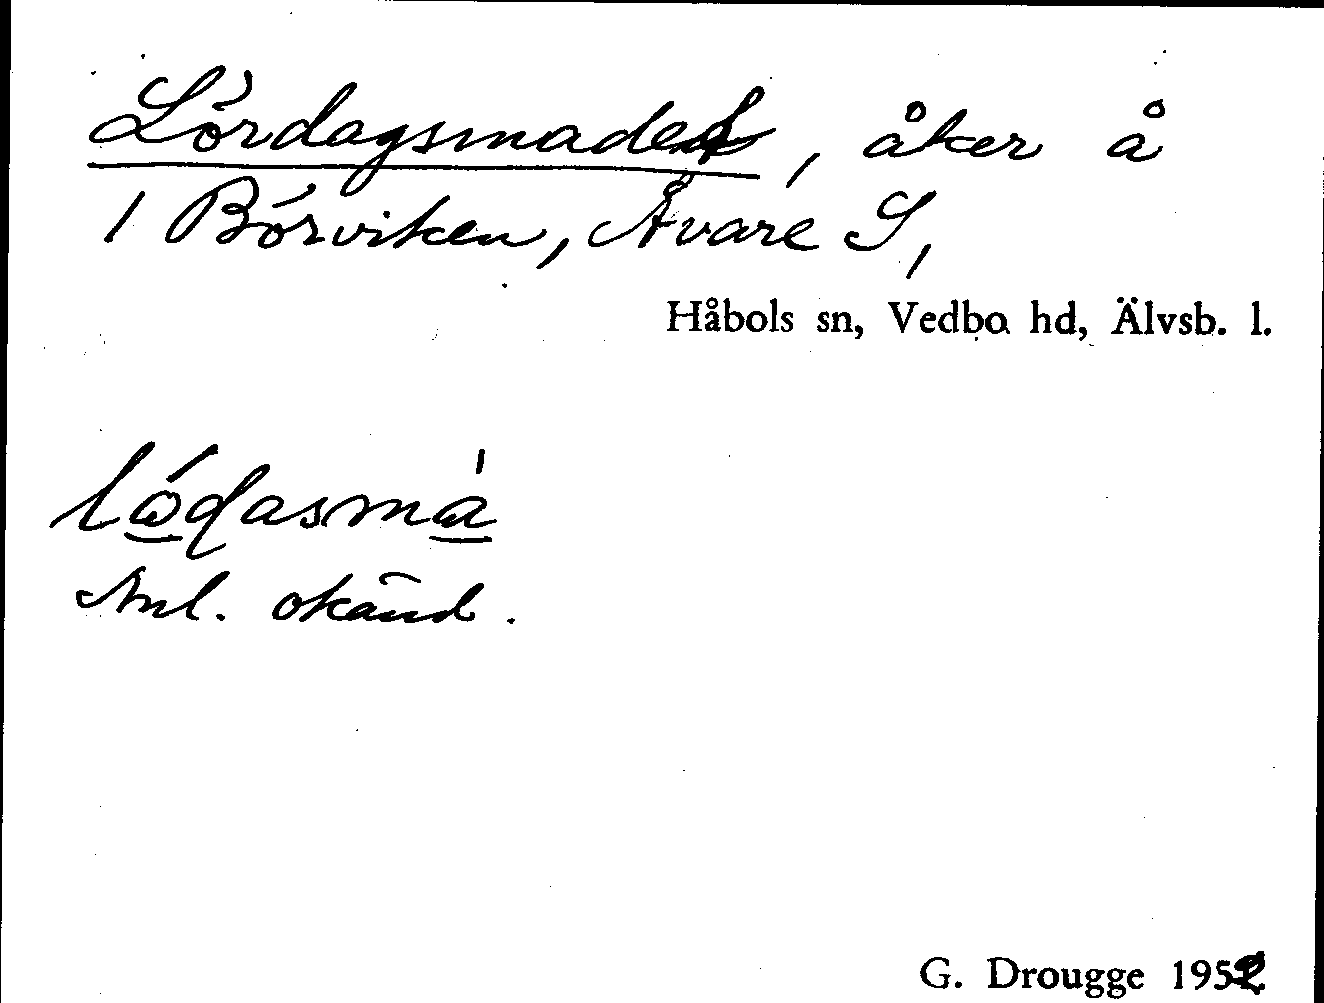 Lördagsmaden, åker å
1 Börviken, Åvare S,
Håbols sn, Vedbo hd, Älvsb. l.
lödasma
Anl. okänd.
G. Drougge 1952